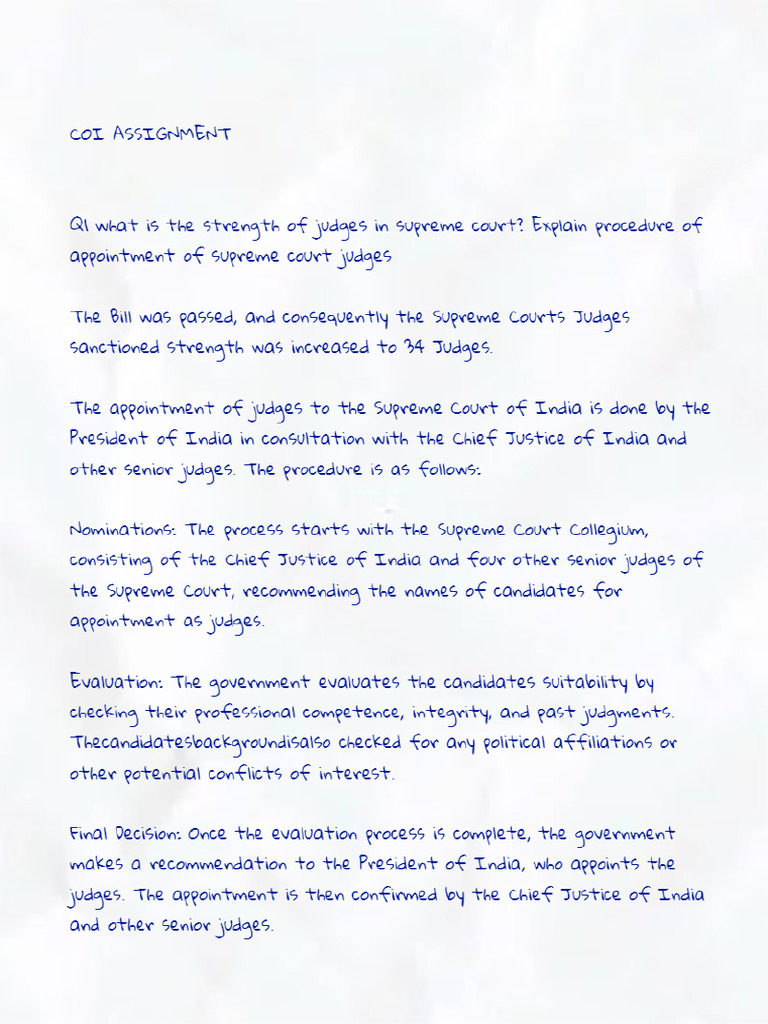 COI ASSIGNMENT
Q1 what is the strength of judges in supreme court? Explain procedure of
appointment of supreme court judges
The Bill was passed, and consequently the Supreme Courts Judges
sanctioned strength was increased to 34 Judges.
The appointment of judges to the Supreme Court of India is done by the
President of India in consultation with the Chief Justice of India and
other senior judges. The procedure is as follows:
Nominations: The process starts with the Supreme Court Collegium,
consisting of the Chief Justice of India and four other senior judges of
the Supreme Court, recommending the names of candidates for
appointment as judges.
Evaluation: The government evaluates the candidates suitability by
checking their professional competence, integrity, and past judgments.
Thecandidatesbackgroundisalso checked for any political affiliations or
other potential conflicts of interest.
Final Decision: Once the evaluation process is complete, the government
makes a recommendation to the President of India, who appoints the
judges. The appointment is then confirmed by the Chief Justice of India
and other senior judges.